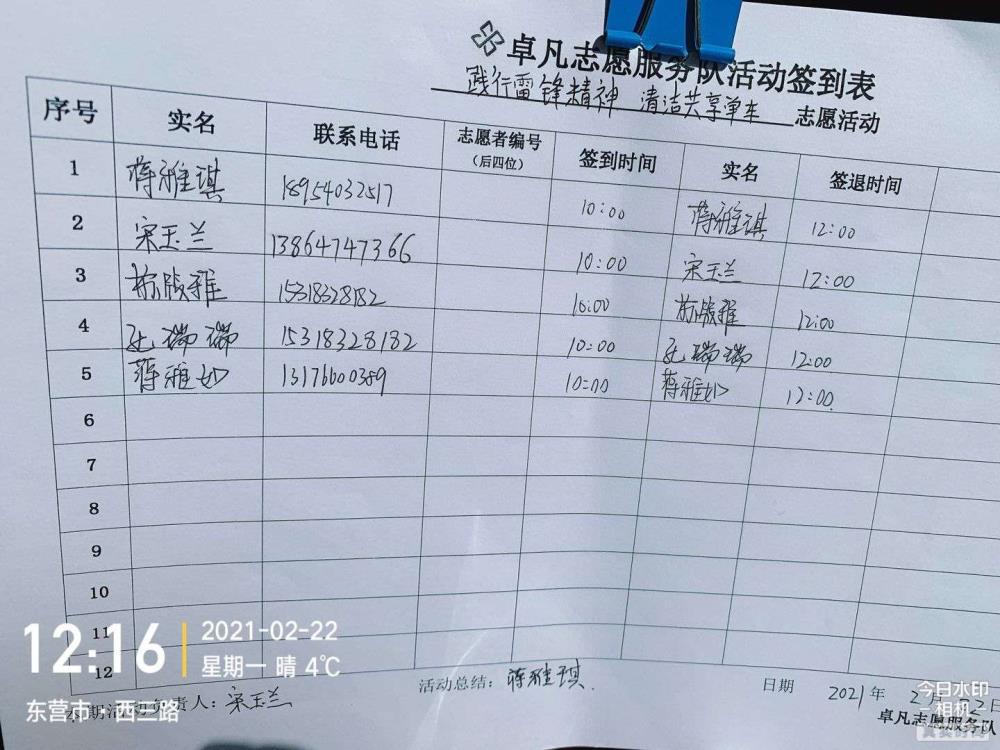 卓凡志愿服务队活动签到表
践行雷锋精神 清洁共享单车 志愿活动
序号 实名 联系电话 志愿者编号（后四位） 签到时间 实名 签退时间
1 蒋雅琪 18954032517 10:00 蒋雅琪 12:00
2 宋玉兰 13864747366 10:00 宋玉兰 12:00
3 15318328182 10:00 12:00
4 瑞瑞 15318328182 10:00 瑞瑞 12:00
5 蒋雅如 13176000389 10:00 蒋雅如 12:00
6
7
8
9
10
11
12
本期活动负责人：宋玉兰 活动总结：蒋雅琪 日期 2021年2月22日
卓凡志愿服务队
12:16
2021-02-22
星期一 晴 4℃
东营市·西三路
今日水印
相机
真实时间